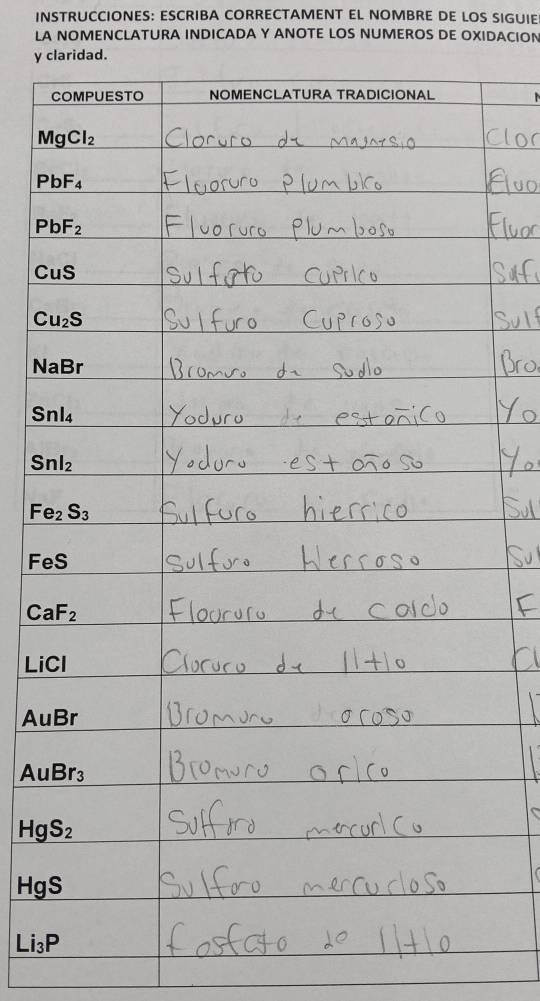 INSTRUCCIONES: ESCRIBA CORRECTAMENT EL NOMBRE DE LOS SIGUIE
LA NOMENCLATURA INDICADA Y ANOTE LOS NUMEROS DE OXIDACION
y claridad.
COMPUESTO NOMENCLATURA TRADICIONAL N
MgCl₂ Cloruro de magnesio Clor
PbF₄ Fluoruro Plumbico Fluo
PbF₂ Fluoruro Plumboso Fluor
CuS Sulfuro Cuprico Sulf
Cu₂S Sulfuro Cuproso Sulf
NaBr Bromuro de Sodio Bro
SnI₄ Yoduro de estañico Yo
SnI₂ Yoduro estañoso Yo
Fe₂ S₃ Sulfuro hierrico Sul
FeS Sulfuro Hierroso Su
CaF₂ Floururo de calcio F
LiCl Cloruro de litio Cl
AuBr Bromuro oroso
AuBr₃ Bromuro orico
HgS₂ Sulfuro mercurico
HgS Sulfuro mercurioso
Li₃P fosfato de litio